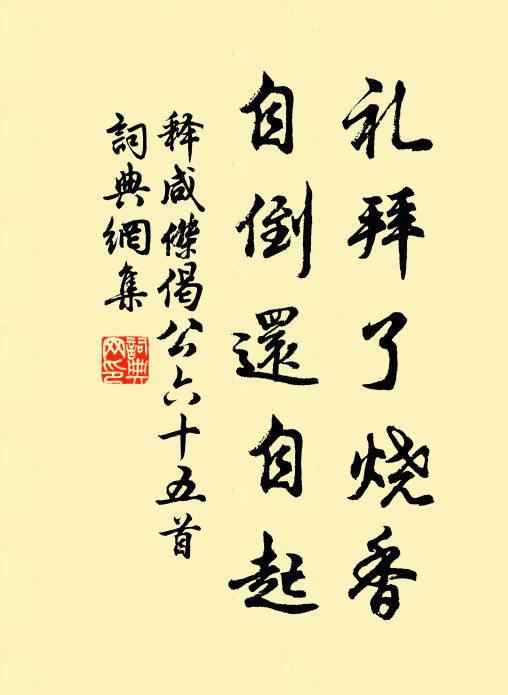 礼拜了烧香
自倒還自起
释咸傑偈公六十五首
詞典網集
詞典網印